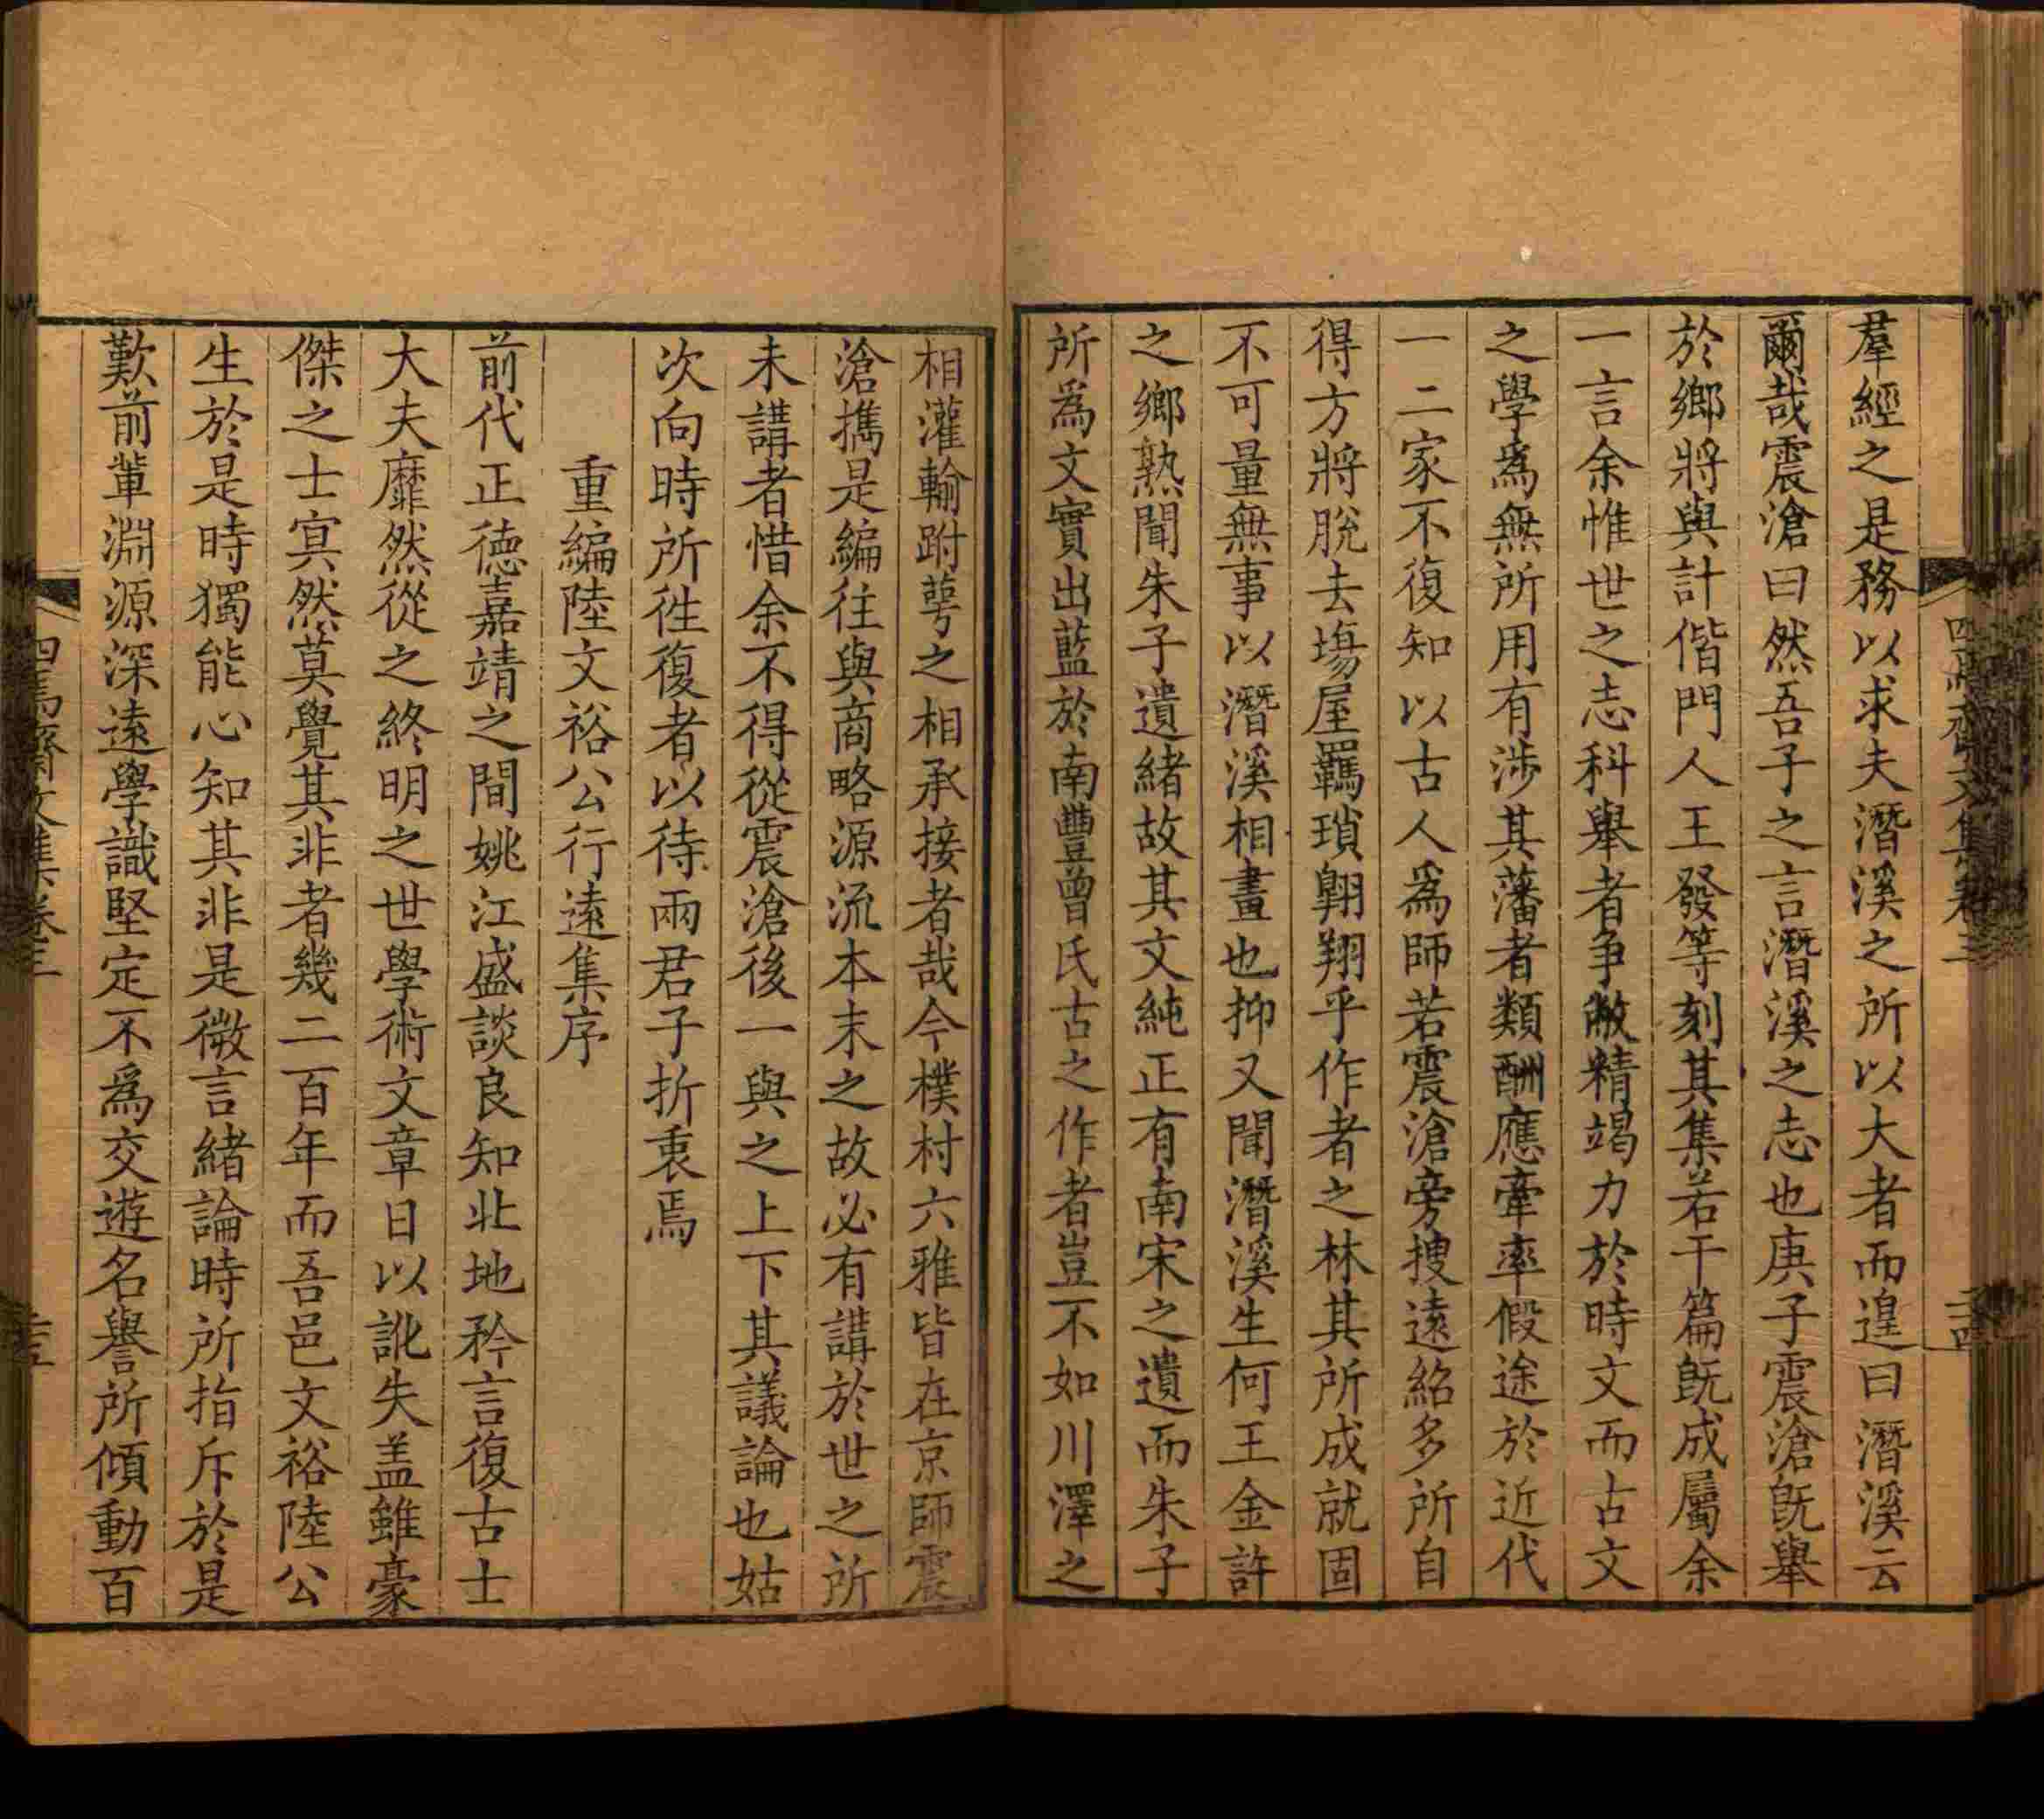 羣經之是務以求夫潛溪之所以大者而遑曰潛溪云
爾哉震滄曰然吾子之言潛溪之志也庚子震滄旣舉
於鄉將與計偕門人王發等刻其集若干篇旣成屬余
一言余惟世之志科舉者争敝精竭力於時文而古文
之學爲無所用有涉其藩者類酬應牽率假途於近代
一二家不復知以古人爲師若震滄旁搜遠紹多所自
得方將脫去塲屋羈瑣翺翔乎作者之林其所成就固
不可量無事以潛溪相畫也抑又聞潛溪生何王金許
之鄉熟聞朱子遺緒故其文純正有南宋之遺而朱子
所爲文實出藍於南豐曾氏古之作者豈不如川澤之
相灌輸跗萼之相承接者哉今樸村六雅皆在京師震
滄攜是編往與商略源流本末之故必有講於世之所
未講者惜余不得從震滄後一與之上下其議論也姑
次向時所徃復者以待兩君子折衷焉
重編陸文裕公行遠集序
前代正德嘉靖之間姚江盛談良知北地矜言復古士
大夫靡然從之終明之世學術文章日以訛失盖雖豪
傑之士㝠然莫覺其非者幾二百年而吾邑文裕陸公
生於是時獨能心知其非是微言緒論時所指斥於是
歎前輩淵源深遠學識堅定不爲交遊名譽所傾動百
四焉齋文集卷三
二十五